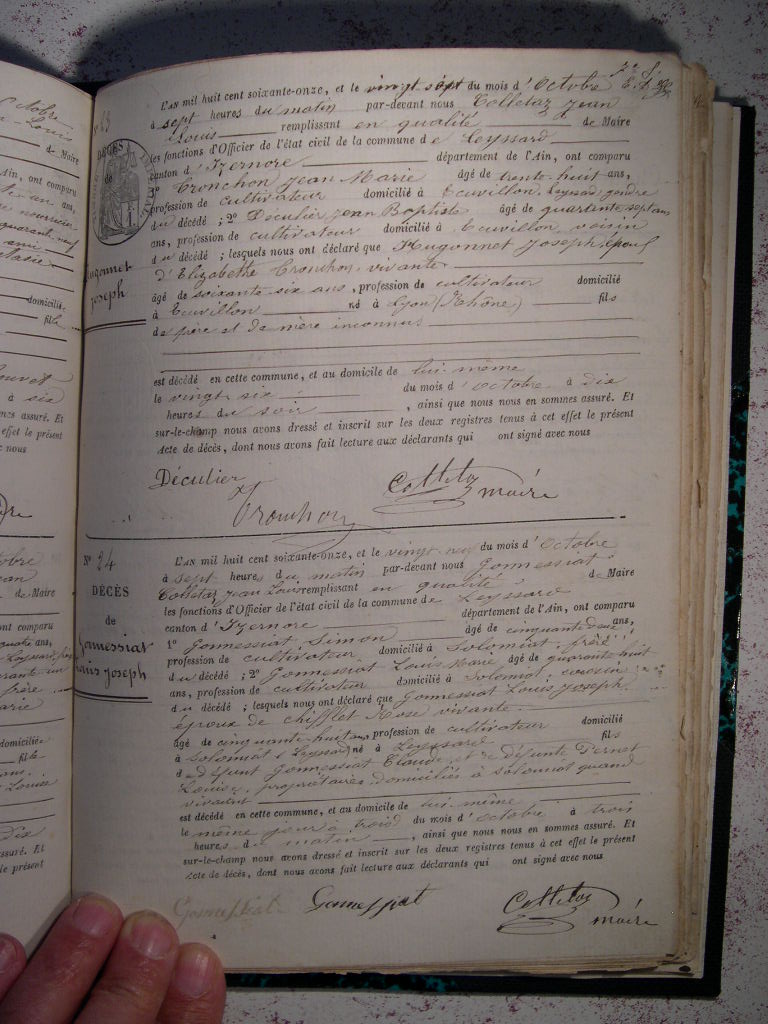 L'AN mil huit cent soixante-onze, et le vingt sept du mois d'Octobre
à sept heures du matin par-devant nous Colletaz Jean
Louis remplissant en qualité de Maire
les fonctions d'Officier de l'état civil de la commune de Leyssard
canton d'Izernore département de l'Ain, ont comparu
1° Tronchon Jean Marie âgé de trente-huit ans,
profession de cultivateur domicilié à Leuvillon, Leyssard gendre
du décédé ; 2° Déculier Jean Baptiste âgé de quarante sept ans
ans, profession de cultivateur domicilié à Leuvillon voisin
du décédé ; lesquels nous ont déclaré que Hugonnet Joseph, époux
d'Elizabethe Tronchon, vivante
âgé de soixante six ans, profession de cultivateur domicilié
à Leuvillon né à Lyon (Rhône) fils
de père et de mère inconnus
est décédé en cette commune, et au domicile de lui-même
le vingt six du mois d'Octobre à dix
heures du soir, ainsi que nous nous en sommes assuré. Et
sur-le-champ nous avons dressé et inscrit sur les deux registres tenus à cet effet le présent
Acte de décès, dont nous avons fait lecture aux déclarants qui ont signé avec nous
DÉCÈS
de
Hugonnet
Joseph
Déculier
Tronchon
Colletaz maire
N° 24
DÉCÈS
de
Gonnessiat
Louis Joseph
L'AN mil huit cent soixante-onze, et le vingt-neuf du mois d'Octobre
à sept heures du matin par-devant nous Gonnessiat
Colletaz Jean Louis remplissant en qualité de Maire
les fonctions d'Officier de l'état civil de la commune de Leyssard
canton d'Izernore département de l'Ain, ont comparu
1° Gonnessiat Simon âgé de cinquante deux ans,
profession de cultivateur domicilié à Solomiat, frère
du décédé ; 2° Gonnessiat Louis Marie âgé de quarante huit
ans, profession de cultivateur domicilié à Solomiat, cousin
du décédé ; lesquels nous ont déclaré que Gonnessiat Louis Joseph
époux de Chifflet Rose vivante
âgé de cinquante-huit ans, profession de cultivateur domicilié
à Solomiat, Leyssard né à Leyssard fils
de défunt Gonnessiat Claude et de défunte Pernet
Louise, propriétaires domiciliés à Solomiat quand
vivaient
est décédé en cette commune, et au domicile de lui-même
le même jour à trois du mois d'Octobre à trois
heures du matin, ainsi que nous nous en sommes assuré. Et
sur-le-champ nous avons dressé et inscrit sur les deux registres tenus à cet effet le présent
Acte de décès, dont nous avons fait lecture aux déclarants qui ont signé avec nous
Gonnessiat Gonnessiat Colletaz
maire